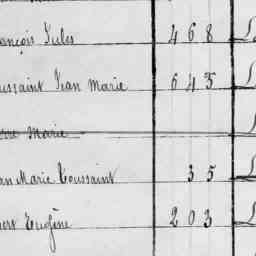 ançois Jules 468
ussaint Jean Marie 645
erre Marie
an Marie Toussaint 35
bert Eugène 203